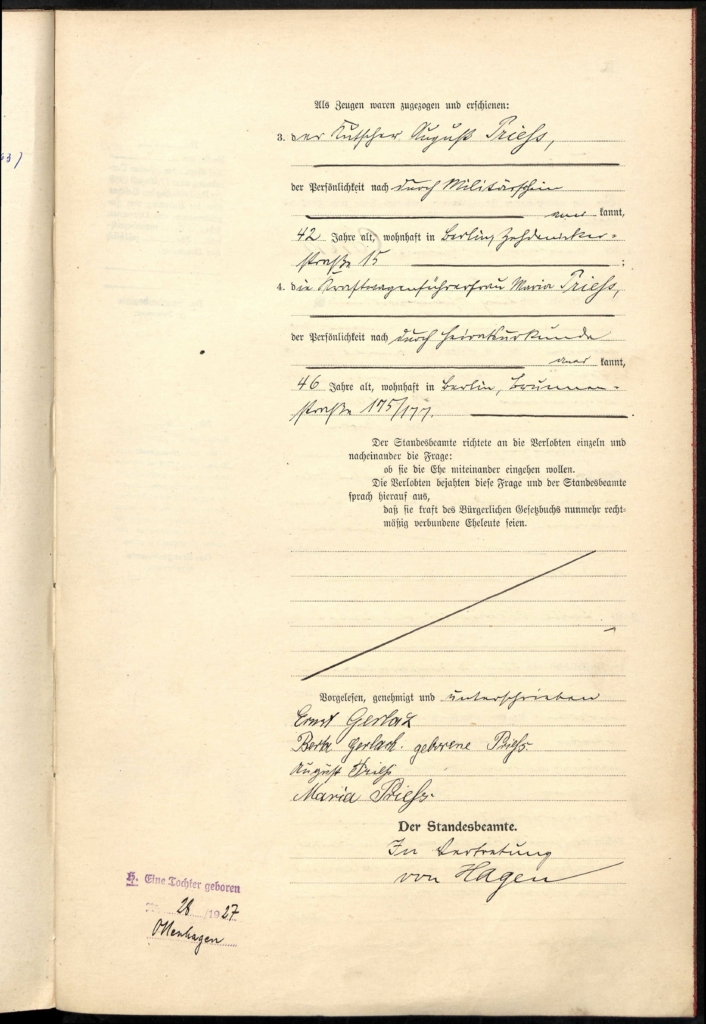 63)
Als Zeugen waren zugezogen und erschienen:
3. der Kutscher August Prieß,
der Persönlichkeit nach durch Militärschein
aner kannt,
42 Jahre alt, wohnhaft in Berlin, Zehdenicker-
straße 15 ;
4. die Kraftwagenführerfrau Maria Prieß,
der Persönlichkeit nach durch Heiratsurkunde
aner kannt,
46 Jahre alt, wohnhaft in Berlin, Brunnen-
straße 175/177.
Der Standesbeamte richtete an die Verlobten einzeln und
nacheinander die Frage:
ob sie die Ehe miteinander eingehen wollen.
Die Verlobten bejahten diese Frage und der Standesbeamte
sprach hierauf aus,
daß sie kraft des Bürgerlichen Gesetzbuchs nunmehr recht-
mäßig verbundene Eheleute seien.
Vorgelesen, genehmigt und unterschrieben
Ernst Gerlach
Berta Gerlach geborene Prieß
August Prieß
Maria Prieß
Der Standesbeamte.
In Vertretung
von Hagen
K. Eine Tochter geboren
28 /1927
Ottenhagen